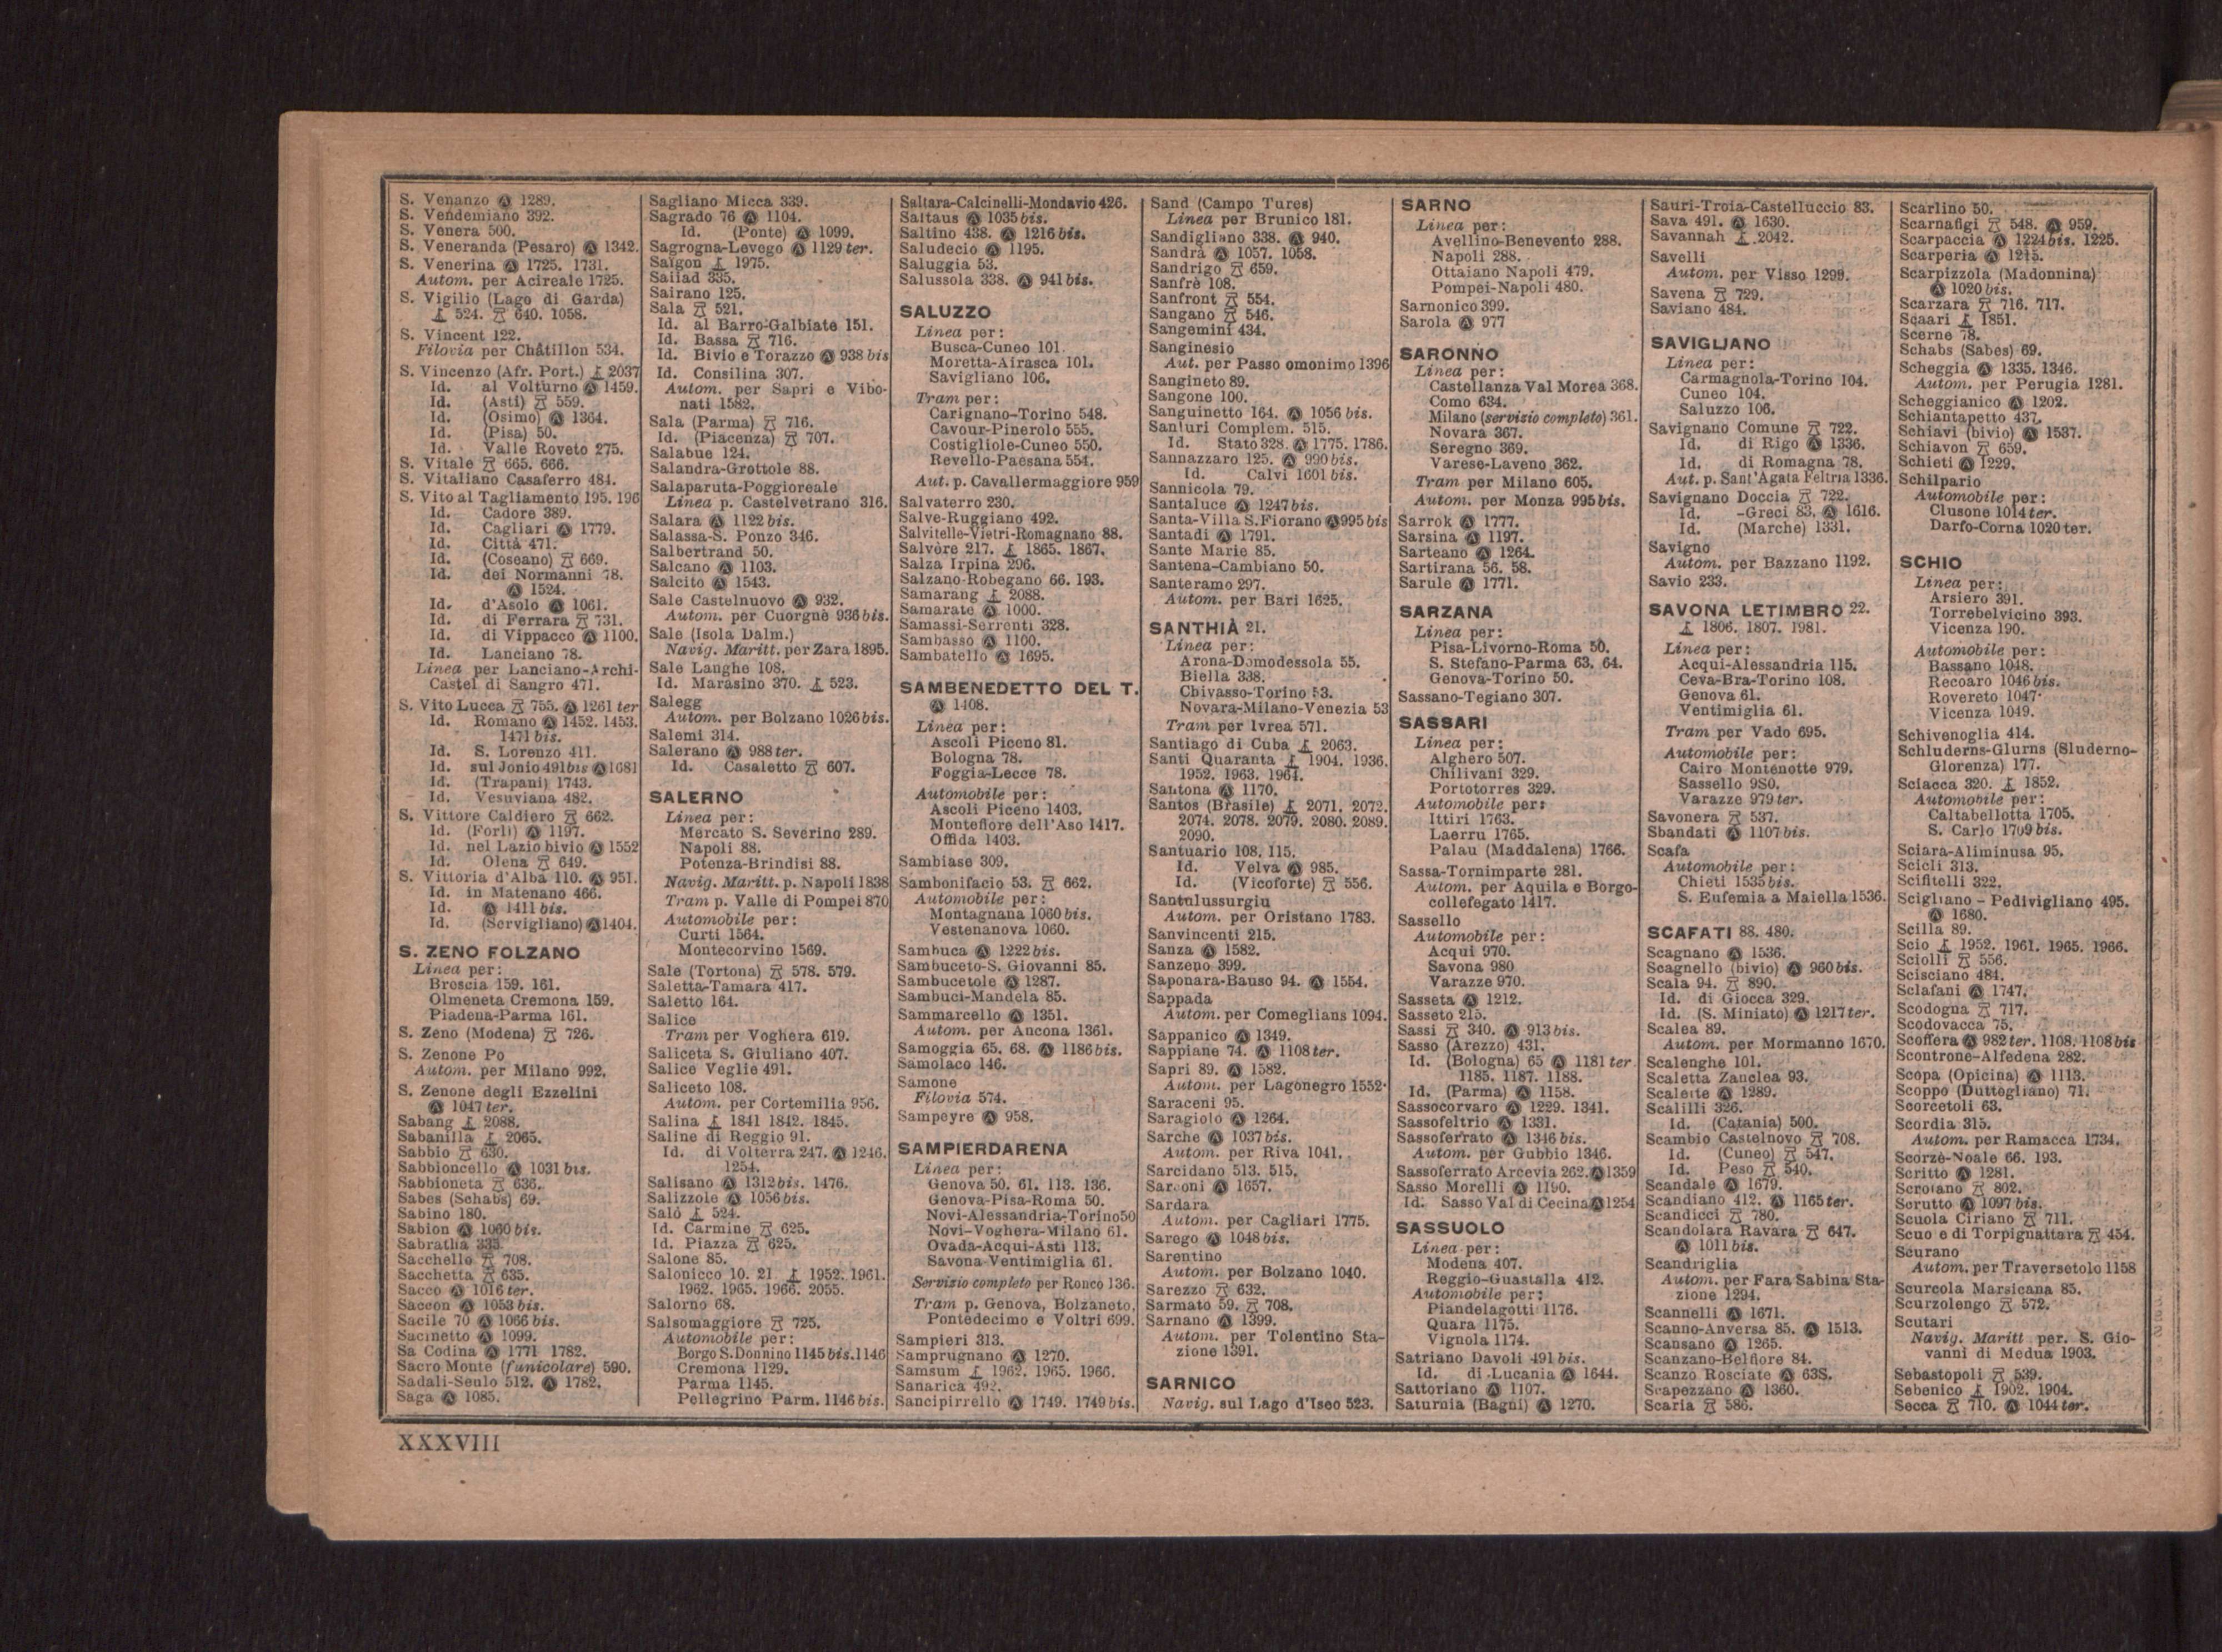 S. Venanzo Ⓐ 1289.
S. Vendemiano 392.
S. Venera 500.
S. Veneranda (Pesaro) Ⓐ 1342.
S. Venerina Ⓐ 1725. 1731.
Autom. per Acireale 1725.
S. Vigilio (Lago di Garda)
524. 640. 1058.
S. Vincent 122.
Filovia per Châtillon 534.
S. Vincenzo (Afr. Port.) 2037
Id. al Volturno Ⓐ 1459.
Id. (Asti) 559.
Id. (Osimo) Ⓐ 1364.
Id. (Pisa) 50.
Id. Valle Roveto 275.
S. Vitale 665. 666.
S. Vitaliano Casaferro 484.
S. Vito al Tagliamento 195. 196
Id. Cadore 389.
Id. Cagliari Ⓐ 1779.
Id. Città 471.
Id. (Coseano) 669.
Id. dei Normanni 78.
Ⓐ 1524.
Id. d'Asolo Ⓐ 1061.
Id. di Ferrara 731.
Id. di Vippacco Ⓐ 1100.
Id. Lanciano 78.
Linea per Lanciano-Archi-
Castel di Sangro 471.
S. Vito Lucca 755. Ⓐ 1261 ter
Id. Romano Ⓐ 1452. 1453.
1471 bis.
Id. S. Lorenzo 411.
Id. sul Jonio 491 bis Ⓐ 1681
Id. (Trapani) 1743.
Id. Vesuviana 482.
S. Vittore Caldiero 662.
Id. (Forlì) Ⓐ 1197.
Id. nel Lazio bivio Ⓐ 1552
Id. Olena 649.
S. Vittoria d'Alba 110. Ⓐ 951.
Id. in Matenano 466.
Id. Ⓐ 1411 bis.
Id. (Servigliano) Ⓐ 1404.
S. ZENO FOLZANO
Linea per:
Brescia 159. 161.
Olmeneta Cremona 159.
Piadena-Parma 161.
S. Zeno (Modena) 726.
S. Zenone Po
Autom. per Milano 992.
S. Zenone degli Ezzelini
Ⓐ 1047 ter.
Sabang 2088.
Sabanilla 2065.
Sabbio 630.
Sabbioncello Ⓐ 1031 bis.
Sabbioneta 636.
Sabes (Schabs) 69.
Sabino 180.
Sabion Ⓐ 1060 bis.
Sabratha 335.
Sacchello 708.
Sacchetta 635.
Sacco Ⓐ 1016 ter.
Saccon Ⓐ 1053 bis.
Sacile 70 Ⓐ 1066 bis.
Sacinetto Ⓐ 1099.
Sa Codina Ⓐ 1771 1782.
Sacro Monte (funicolare) 590.
Sadali-Seulo 512. Ⓐ 1782.
Saga Ⓐ 1085.
Sagliano Micca 339.
Sagrado 76 Ⓐ 1104.
Id. (Ponte) Ⓐ 1099.
Sagrogna-Levego Ⓐ 1129 ter.
Saigon 1975.
Sailad 335.
Sairano 125.
Sala 521.
Id. al Barro-Galbiate 151.
Id. Bassa 716.
Id. Bivio e Torazzo Ⓐ 938 bis
Id. Consilina 307.
Autom. per Sapri e Vibo-
nati 1582.
Sala (Parma) 716.
Id. (Piacenza) 707.
Salabue 124.
Salandra-Grottole 88.
Salaparuta-Poggioreale
Linea p. Castelvetrano 316.
Salara Ⓐ 1122 bis.
Salassa-S. Ponzo 346.
Salbertrand 50.
Salcano Ⓐ 1103.
Salcito Ⓐ 1543.
Sale Castelnuovo Ⓐ 932.
Autom. per Cuorgnè 936 bis.
Sale (Isola Dalm.)
Navig. Maritt. per Zara 1895.
Sale Langhe 108.
Id. Marasino 370. 523.
Salegg
Autom. per Bolzano 1026 bis.
Salemi 314.
Salerano Ⓐ 988 ter.
Id. Casaletto 607.
SALERNO
Linea per:
Mercato S. Severino 289.
Napoli 88.
Potenza-Brindisi 88.
Navig. Maritt. p. Napoli 1838
Tram p. Valle di Pompei 870
Automobile per:
Curti 1564.
Montecorvino 1569.
Sale (Tortona) 578. 579.
Saletta-Tamara 417.
Saletto 164.
Salice
Tram per Voghera 619.
Saliceta S. Giuliano 407.
Salice Veglie 491.
Saliceto 108.
Autom. per Cortemilia 956.
Salina 1841 1842. 1845.
Saline di Reggio 91.
Id. di Volterra 247. Ⓐ 1246.
1254.
Salisano Ⓐ 1312 bis. 1476.
Salizzole Ⓐ 1056 bis.
Salò 524.
Id. Carmine 625.
Id. Piazza 625.
Salone 85.
Salonicco 10. 21 1952. 1961.
1962. 1965. 1966. 2055.
Salorno 68.
Salsomaggiore 725.
Automobile per:
Borgo S. Donnino 1145 bis. 1146
Cremona 1129.
Parma 1145.
Pellegrino Parm. 1146 bis.
Saltara-Calcinelli-Mondavio 426.
Saltaus Ⓐ 1035 bis.
Saltino 438. Ⓐ 1216 bis.
Saludecio Ⓐ 1195.
Saluggia 53.
Salussola 338. Ⓐ 941 bis.
SALUZZO
Linea per:
Busca-Cuneo 101.
Moretta-Airasca 101.
Savigliano 106.
Tram per:
Carignano-Torino 548.
Cavour-Pinerolo 555.
Costigliole-Cuneo 550.
Revello-Paesana 554.
Aut. p. Cavallermaggiore 959
Salvaterro 230.
Salve-Ruggiano 492.
Salvitelle-Vietri-Romagnano 88.
Salvore 217. 1865. 1867.
Salza Irpina 296.
Salzano-Robegano 66. 193.
Samarang 2088.
Samarate Ⓐ 1000.
Samassi-Serrenti 328.
Sambasso Ⓐ 1100.
Sambatello Ⓐ 1695.
SAMBENEDETTO DEL T.
Ⓐ 1408.
Linea per:
Ascoli Piceno 81.
Bologna 78.
Foggia-Lecce 78.
Automobile per:
Ascoli Piceno 1403.
Montefiore dell'Aso 1417.
Offida 1403.
Sambiase 309.
Sambonifacio 53. 662.
Automobile per:
Montagnana 1060 bis.
Vestenanova 1060.
Sambuca Ⓐ 1222 bis.
Sambuceto-S. Giovanni 85.
Sambucetole Ⓐ 1287.
Sambuci-Mandela 85.
Sammarcello Ⓐ 1351.
Autom. per Ancona 1361.
Samoggia 65. 68. Ⓐ 1186 bis.
Samolaco 146.
Samone
Filovia 574.
Sampeyre Ⓐ 958.
SAMPIERDARENA
Linea per:
Genova 50. 61. 113. 136.
Genova-Pisa-Roma 50.
Novi-Alessandria-Torino 50
Novi-Voghera-Milano 61.
Ovada-Acqui-Asti 113.
Savona-Ventimiglia 61.
Servizio completo per Ronco 136.
Tram p. Genova, Bolzaneto,
Pontedecimo e Voltri 699.
Sampieri 313.
Samprugnano Ⓐ 1270.
Samsum 1962. 1965. 1966.
Sanarica 492.
Sancipirrello Ⓐ 1749. 1749 bis.
Sand (Campo Tures)
Linea per Brunico 181.
Sandigliano 338. Ⓐ 940.
Sandrà Ⓐ 1057. 1058.
Sandrigo 659.
Sanfrè 108.
Sanfront 554.
Sangano 546.
Sangemini 434.
Sanginesio
Aut. per Passo omonimo 1396
Sangineto 89.
Sangone 100.
Sanguinetto 164. Ⓐ 1056 bis.
Sanluri Complem. 515.
Id. Stato 328. Ⓐ 1775. 1786.
Sannazzaro 125. Ⓐ 990 bis.
Id. Calvi 1601 bis.
Sannicola 79.
Santaluce Ⓐ 1247 bis.
Santa-Villa S. Fiorano Ⓐ 995 bis
Santadi Ⓐ 1791.
Sante Marie 85.
Santena-Cambiano 50.
Santeramo 297.
Autom. per Bari 1625.
SANTHIÀ 21.
Linea per:
Arona-Domodossola 55.
Biella 338.
Chivasso-Torino 53.
Novara-Milano-Venezia 53
Tram per Ivrea 571.
Santiago di Cuba 2063.
Santi Quaranta 1904. 1936.
1952. 1963. 1964.
Santona Ⓐ 1170.
Santos (Brasile) 2071. 2072.
2074. 2078. 2079. 2080. 2089.
2090.
Santuario 108. 115.
Id. Velva Ⓐ 985.
Id. (Vicoforte) 556.
Santulussurgiu
Autom. per Oristano 1783.
Sanvincenti 215.
Sanza Ⓐ 1582.
Sanzeno 399.
Saponara-Bauso 94. Ⓐ 1554.
Sappada
Autom. per Comeglians 1094.
Sappanico Ⓐ 1349.
Sappiane 74. Ⓐ 1108 ter.
Sapri 89. Ⓐ 1582.
Autom. per Lagonegro 1552.
Saraceni 95.
Saragiolo Ⓐ 1264.
Sarche Ⓐ 1037 bis.
Autom. per Riva 1041.
Sarcidano 513. 515.
Sarconi Ⓐ 1657.
Sardara
Autom. per Cagliari 1775.
Sarego Ⓐ 1048 bis.
Sarentino
Autom. per Bolzano 1040.
Sarezzo 632.
Sarmato 59. 708.
Sarnano Ⓐ 1399.
Autom. per Tolentino Sta-
zione 1391.
SARNICO
Navig. sul Lago d'Iseo 523.
SARNO
Linea per:
Avellino-Benevento 288.
Napoli 288.
Ottaiano Napoli 479.
Pompei-Napoli 480.
Sarnonico 399.
Sarola Ⓐ 977
SARONNO
Linea per:
Castellanza Val Morea 368.
Como 634.
Milano (servizio completo) 361.
Novara 367.
Seregno 369.
Varese-Laveno 362.
Tram per Milano 605.
Autom. per Monza 995 bis.
Sarrok Ⓐ 1777.
Sarsina Ⓐ 1197.
Sarteano Ⓐ 1264.
Sartirana 56. 58.
Sarule Ⓐ 1771.
SARZANA
Linea per:
Pisa-Livorno-Roma 50.
S. Stefano-Parma 63. 64.
Genova-Torino 50.
Sassano-Tegiano 307.
SASSARI
Linea per:
Alghero 507.
Chilivani 329.
Portotorres 329.
Automobile per:
Ittiri 1763.
Laerru 1765.
Palau (Maddalena) 1766.
Sassa-Tornimparte 281.
Autom. per Aquila e Borgo-
collefegato 1417.
Sassello
Automobile per:
Acqui 970.
Savona 980
Varazze 970.
Sasseta Ⓐ 1212.
Sasseto 215.
Sassi 340. Ⓐ 913 bis.
Sasso (Arezzo) 431.
Id. (Bologna) 65 Ⓐ 1181 ter
1185. 1187. 1188.
Id. (Parma) Ⓐ 1158.
Sassocorvaro Ⓐ 1229. 1341.
Sassofeltrio Ⓐ 1331.
Sassoferrato Ⓐ 1346 bis.
Autom. per Gubbio 1346.
Sassoferrato Arcevia 262. Ⓐ 1359
Sasso Morelli Ⓐ 1190.
Id. Sasso Val di Cecina Ⓐ 1254
SASSUOLO
Linea per:
Modena 407.
Reggio-Guastalla 412.
Automobile per:
Piandelagotti 1176.
Quara 1175.
Vignola 1174.
Satriano Davoli 491 bis.
Id. di Lucania Ⓐ 1644.
Sattoriano Ⓐ 1107.
Saturnia (Bagni) Ⓐ 1270.
Sauri-Troia-Castelluccio 83.
Sava 491. Ⓐ 1630.
Savannah 2042.
Savelli
Autom. per Visso 1299.
Savena 729.
Saviano 484.
SAVIGLIANO
Linea per:
Carmagnola-Torino 104.
Cuneo 104.
Saluzzo 106.
Savignano Comune 722.
Id. di Rigo Ⓐ 1336.
Id. di Romagna 78.
Aut. p. Sant'Agata Feltria 1336.
Savignano Doccia 722.
Id. -Greci 83. Ⓐ 1616.
Id. (Marche) 1331.
Savigno
Autom. per Bazzano 1192.
Savio 233.
SAVONA LETIMBRO 22.
1806. 1807. 1981.
Linea per:
Acqui-Alessandria 115.
Ceva-Bra-Torino 108.
Genova 61.
Ventimiglia 61.
Tram per Vado 695.
Automobile per:
Cairo Montenotte 979.
Sassello 980.
Varazze 979 ter.
Savonera 537.
Sbandati Ⓐ 1107 bis.
Scafa
Automobile per:
Chieti 1535 bis.
S. Eufemia a Maiella 1536.
SCAFATI 88. 480.
Scagnano Ⓐ 1536.
Scagnello (bivio) Ⓐ 960 bis.
Scala 94. 890.
Id. di Giocca 329.
Id. (S. Miniato) Ⓐ 1217 ter.
Scalea 89.
Autom. per Mormanno 1670.
Scalenghe 101.
Scaletta Zanclea 93.
Scalette Ⓐ 1289.
Scalilli 326.
Id. (Catania) 500.
Scambio Castelnovo 708.
Id. (Cuneo) 547.
Id. Peso 540.
Scandale Ⓐ 1679.
Scandiano 412. Ⓐ 1165 ter.
Scandicci 780.
Scandolara Ravara 647.
Ⓐ 1011 bis.
Scandriglia
Autom. per Fara Sabina Sta-
zione 1294.
Scannelli Ⓐ 1671.
Scanno-Anversa 85. Ⓐ 1513.
Scansano Ⓐ 1265.
Scanzano-Belfiore 84.
Scanzo Rosciate Ⓐ 638.
Scapezzano Ⓐ 1360.
Scaria 586.
Scarlino 50.
Scarnafigi 548. Ⓐ 959.
Scarpaccia Ⓐ 1224 bis. 1225.
Scarperia Ⓐ 1215.
Scarpizzola (Madonnina)
Ⓐ 1020 bis.
Scarzara 716. 717.
Scaari 1851.
Scerne 78.
Schabs (Sabes) 69.
Scheggia Ⓐ 1335. 1346.
Autom. per Perugia 1281.
Scheggianico Ⓐ 1202.
Schiantapetto 437.
Schiavi (bivio) Ⓐ 1537.
Schiavon 659.
Schieti Ⓐ 1229.
Schilpario
Automobile per:
Clusone 1014 ter.
Darfo-Corna 1020 ter.
SCHIO
Linea per:
Arsiero 391.
Torrebelvicino 393.
Vicenza 190.
Automobile per:
Bassano 1048.
Recoaro 1046 bis.
Rovereto 1047.
Vicenza 1049.
Schivenoglia 414.
Schluderns-Glurns (Sluderno-
Glorenza) 177.
Sciacca 320. 1852.
Automobile per:
Caltabellotta 1705.
S. Carlo 1709 bis.
Sciara-Aliminusa 95.
Scicli 313.
Scifitelli 322.
Scigliano - Pedivigliano 495.
Ⓐ 1680.
Scilla 89.
Scio 1952. 1961. 1965. 1966.
Sciolli 556.
Scisciano 484.
Sclafani Ⓐ 1747.
Scodogna 717.
Scodovacca 75.
Scoffera Ⓐ 982 ter. 1108. 1108 bis
Scontrone-Alfedena 282.
Scopa (Opicina) Ⓐ 1113.
Scoppo (Duttogliano) 71.
Scorcetoli 63.
Scordia 315.
Autom. per Ramacca 1734.
Scorzè-Noale 66. 193.
Scritto Ⓐ 1281.
Scrofano 802.
Scrutto Ⓐ 1097 bis.
Scuola Ciriano 711.
Scuo e di Torpignattara 454.
Scurano
Autom. per Traversetolo 1158
Scurcola Marsicana 85.
Scurzolengo 572.
Scutari
Navig. Maritt per. S. Gio-
vanni di Medua 1903.
Sebastopoli 539.
Sebenico 1902. 1904.
Secca 710. Ⓐ 1044 ter.
XXXVIII